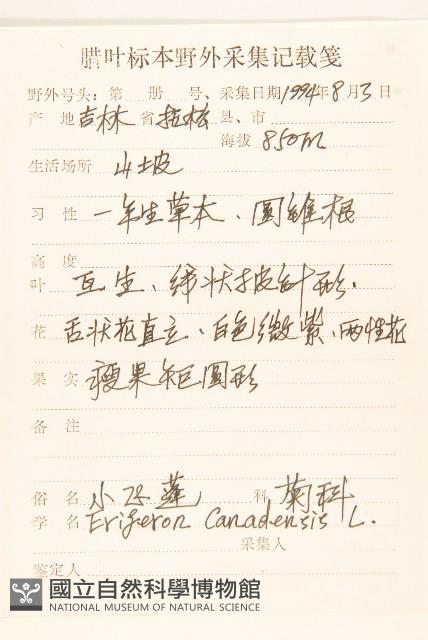 腊叶标本野外采集记载笺
野外号头：第 册 号、采集日期1994年8月3日
产 地 吉林 省 抚松 县、市
海拔 850m
生活场所 山坡
习 性 一年生草本、圆锥根
高 度
叶 互生、线状披针形.
花 舌状花直立、白色微紫、两性花
果 实 瘦果矩圆形
备 注
俗 名 小飞蓬 科 菊科
学 名 Erigeron Canadensis L.
采集人
鉴定人
國立自然科學博物館
NATIONAL MUSEUM OF NATURAL SCIENCE